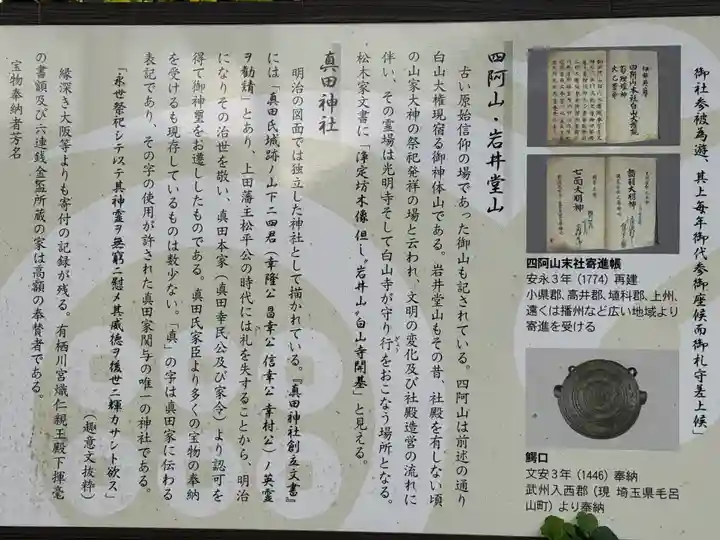 御社参被為遊、其上毎年御代参御座候而御札守差上候」
四阿山・岩井堂山
古い原始信仰の場であった御山も記されている。四阿山は前述の通り
白山大権現宿る御神体山である。岩井堂山もその昔、社殿を有しない頃
の山家大神の祭祀発祥の場と云われ、文明の変化及び社殿造営の流れに
伴い、その霊場は光明寺そして白山寺が守り行をおこなう場所となる。
松木家文書に「浄定坊木像但し〝岩井山〟白山寺開基」と見える。
真田神社
明治の図面では独立した神社として描かれている。『真田神社創立文書』
には「真田氏城跡ノ山下ニ四君(幸隆公 昌幸公 信幸公 幸村公)ノ英霊
ヲ勧請」とあり、上田藩主松平公の時代には礼を失することから、明治
になりその治世を敬い、真田本家(真田幸民公及び家令)より認可を
得て御神璽をお遷ししたものである。真田氏家臣より多くの宝物の奉納
を受けるも現存しているものは数少ない。「眞」の字は真田家に伝わる
表記であり、その字の使用が許された真田家関与の唯一の神社である。
「永世祭祀シテレステ其神霊ヲ無窮ニ慰メ其威徳ヲ後世ニ輝カサント欲ス」
(趣意文抜粋)
縁深き大阪等よりも寄付の記録が残る。有栖川宮熾仁親王殿下揮毫
の書額及び六連銭金盃所蔵の家は高額の奉賛者である。
宝物奉納者芳名
四阿山末社寄進帳
安永3年(1774)再建
小県郡、高井郡、埴科郡、上州、
遠くは播州など広い地域より
寄進を受ける
鰐口
文安3年(1446)奉納
武州入西郡(現 埼玉県毛呂
山町)より奉納